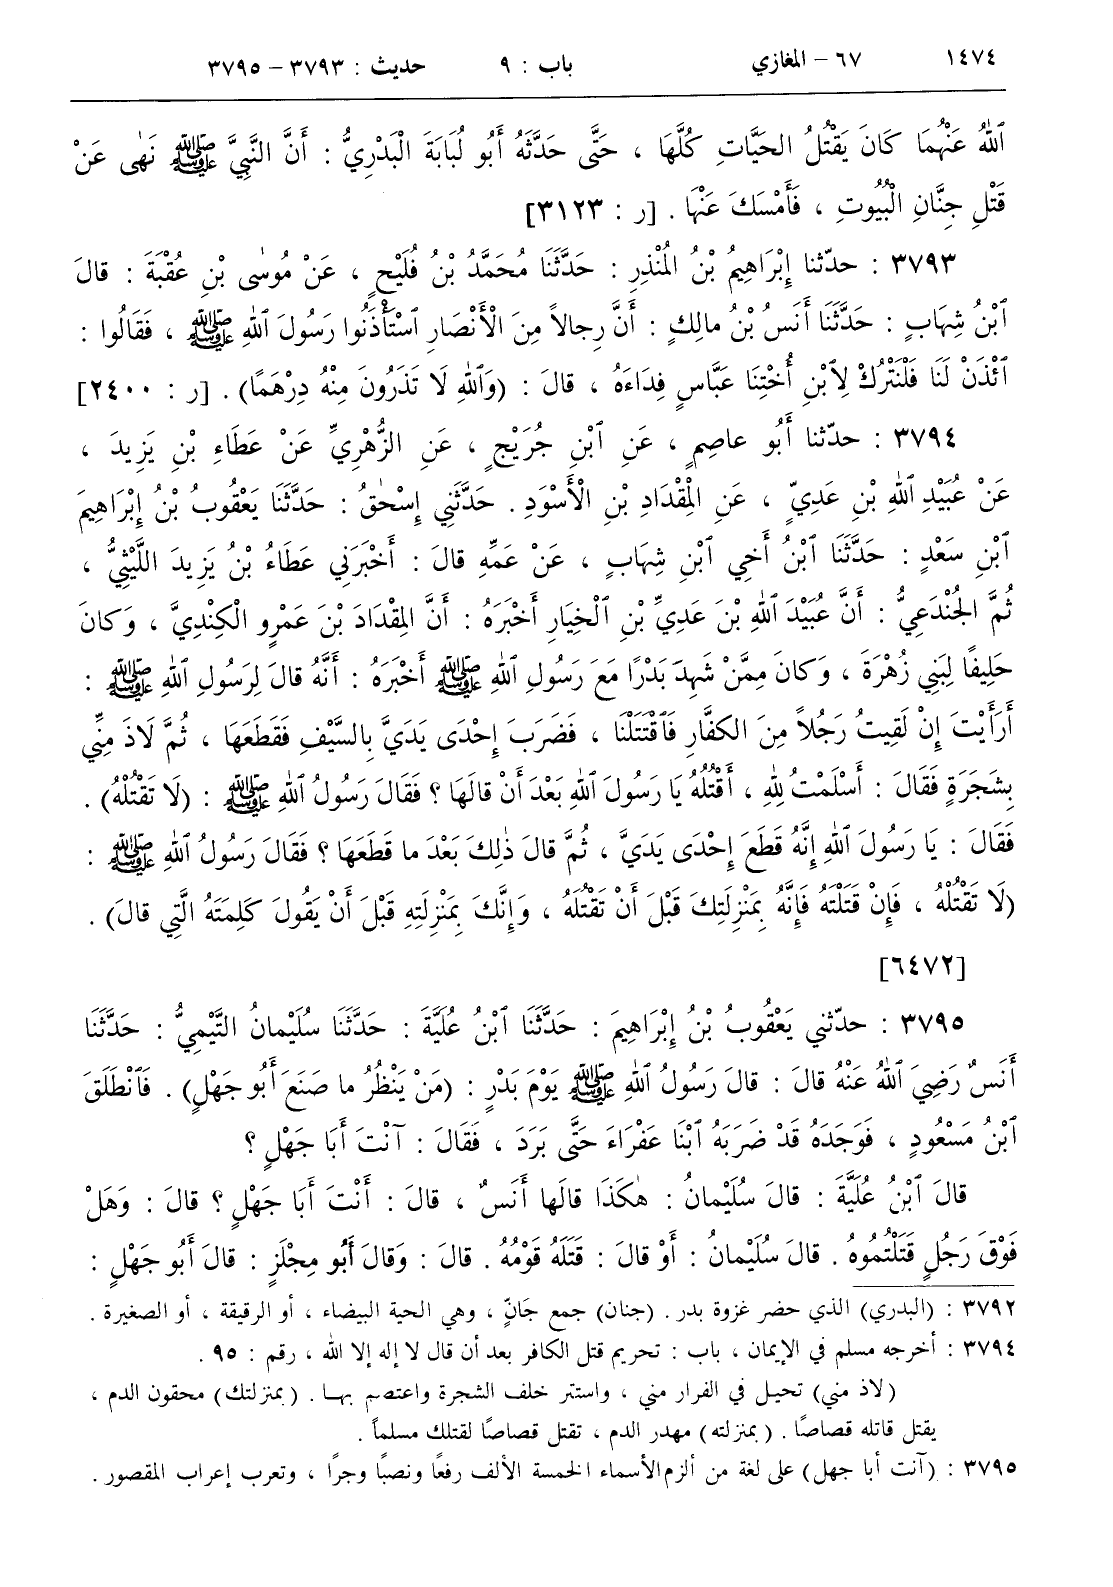 ١٤٧٤ ٦٧ – المغازي باب : ٩ حديث : ٣٧٩٣ – ٣٧٩٥
ٱللهُ عَنْهُمَا كَانَ يَقْتُلُ الحَيَّاتِ كُلَّهَا ، حَتَّى حَدَّثَهُ أَبُو لُبَابَةَ الْبَدْرِيُّ : أَنَّ النَّبِيَّ ﷺ نَهٰى عَنْ
قَتْلِ جِنَّانِ الْبُيُوتِ ، فَأَمْسَكَ عَنْهَا . [ر : ٣١٢٣]
٣٧٩٣ : حدّثنا إِبْرَاهِيمُ بْنُ المُنْذِرِ : حَدَّثَنَا مُحَمَّدُ بْنُ فُلَيْحٍ ، عَنْ مُوسٰى بْنِ عُقْبَةَ : قالَ
ٱبْنُ شِهَابٍ : حَدَّثَنَا أَنَسُ بْنُ مالِكٍ : أَنَّ رِجالاً مِنَ الْأَنْصَارِ ٱسْتَأْذَنُوا رَسُولَ ٱللهِ ﷺ ، فَقَالُوا :
ٱئْذَنْ لَنَا فَلْنَتْرُكْ لِٱبْنِ أُخْتِنَا عَبَّاسٍ فِدَاءَهُ ، قالَ : (وَٱللهِ لَا تَذَرُونَ مِنْهُ دِرْهَمًا) . [ر : ٢٤٠٠]
٣٧٩٤ : حدّثنا أَبُو عاصِمٍ ، عَنِ ٱبْنِ جُرَيْجٍ ، عَنِ الزُّهْرِيِّ عَنْ عَطَاءِ بْنِ يَزِيدَ ،
عَنْ عُبَيْدِ ٱللهِ بْنِ عَدِيٍّ ، عَنِ الْمِقْدَادِ بْنِ الْأَسْوَدِ . حَدَّثَنِي إِسْحٰقُ : حَدَّثَنَا يَعْقُوبُ بْنُ إِبْرَاهِيمَ
ٱبْنِ سَعْدٍ : حَدَّثَنَا ٱبْنُ أَخِي ٱبْنِ شِهَابٍ ، عَنْ عَمِّهِ قالَ : أَخْبَرَنِي عَطَاءُ بْنُ يَزِيدَ اللَّيْثِيُّ ،
ثُمَّ الجُنْدَعِيُّ : أَنَّ عُبَيْدَ ٱللهِ بْنَ عَدِيِّ بْنِ ٱلْخِيَارِ أَخْبَرَهُ : أَنَّ الْمِقْدَادَ بْنَ عَمْرٍو الْكِنْدِيَّ ، وَكانَ
حَلِيفًا لِبَنِي زُهْرَةَ ، وَكانَ مِمَّنْ شَهِدَ بَدْرًا مَعَ رَسُولِ ٱللهِ ﷺ أَخْبَرَهُ : أَنَّهُ قالَ لِرَسُولِ ٱللهِ ﷺ :
أَرَأَيْتَ إِنْ لَقِيتُ رَجُلاً مِنَ الكفَّارِ فَٱقْتَتَلْنَا ، فَضَرَبَ إِحْدَى يَدَيَّ بِالسَّيْفِ فَقَطَعَهَا ، ثُمَّ لَاذَ مِنِّي
بِشَجَرَةٍ فَقَالَ : أَسْلَمْتُ لِلهِ ، أَقْتُلُهُ يَا رَسُولَ ٱللهِ بَعْدَ أَنْ قالَهَا ؟ فَقَالَ رَسُولُ ٱللهِ ﷺ : (لَا تَقْتُلْهُ) .
فَقَالَ : يَا رَسُولَ ٱللهِ إِنَّهُ قَطَعَ إِحْدَى يَدَيَّ ، ثُمَّ قالَ ذٰلِكَ بَعْدَ ما قَطَعَهَا ؟ فَقَالَ رَسُولُ ٱللهِ ﷺ :
(لَا تَقْتُلْهُ ، فَإِنْ قَتَلْتَهُ فَإِنَّهُ بِمَنْزِلَتِكَ قَبْلَ أَنْ تَقْتُلَهُ ، وَإِنَّكَ بِمَنْزِلَتِهِ قَبْلَ أَنْ يَقُولَ كَلِمَتَهُ الَّتِي قالَ) .
[٦٤٧٢]
٣٧٩٥ : حدّثني يَعْقُوبُ بْنُ إِبْرَاهِيمَ : حَدَّثَنَا ٱبْنُ عُلَيَّةَ : حَدَّثَنَا سُلَيْمانُ التَّيْمِيُّ : حَدَّثَنَا
أَنَسٌ رَضِيَ ٱللهُ عَنْهُ قالَ : قالَ رَسُولُ ٱللهِ ﷺ يَوْمَ بَدْرٍ : (مَنْ يَنْظُرُ ما صَنَعَ أَبُو جَهْلٍ) . فَٱنْطَلَقَ
ٱبْنُ مَسْعُودٍ ، فَوَجَدَهُ قَدْ ضَرَبَهُ ٱبْنَا عَفْرَاءَ حَتَّى بَرَدَ ، فَقَالَ : آنْتَ أَبَا جَهْلٍ ؟
قالَ ٱبْنُ عُلَيَّةَ : قالَ سُلَيْمانُ : هٰكَذَا قالَها أَنَسٌ ، قالَ : أَنْتَ أَبَا جَهْلٍ ؟ قالَ : وَهَلْ
فَوْقَ رَجُلٍ قَتَلْتُمُوهُ . قالَ سُلَيْمانُ : أَوْ قالَ : قَتَلَهُ قَوْمُهُ . قالَ : وَقالَ أَبُو مِجْلَزٍ : قالَ أَبُو جَهْلٍ :
٣٧٩٢ : (البدري) الذي حضر غزوة بدر . (جنان) جمع جَانٍّ ، وهي الحية البيضاء ، أو الرقيقة ، أو الصغيرة .
٣٧٩٤ : أخرجه مسلم في الإيمان ، باب : تحريم قتل الكافر بعد أن قال لا إله إلا الله ، رقم : ٩٥ .
(لاذ مني) تحيل في الفرار مني ، واستتر خلف الشجرة واعتصم بها . (بمنزلتك) محقون الدم ،
يقتل قاتله قصاصًا . (بمنزلته) مهدر الدم ، تقتل قصاصًا لقتلك مسلماً .
٣٧٩٥ : (آنت أبا جهل) على لغة من ألزم الأسماء الخمسة الألف رفعًا ونصبًا وجرًا ، وتعرب إعراب المقصور .